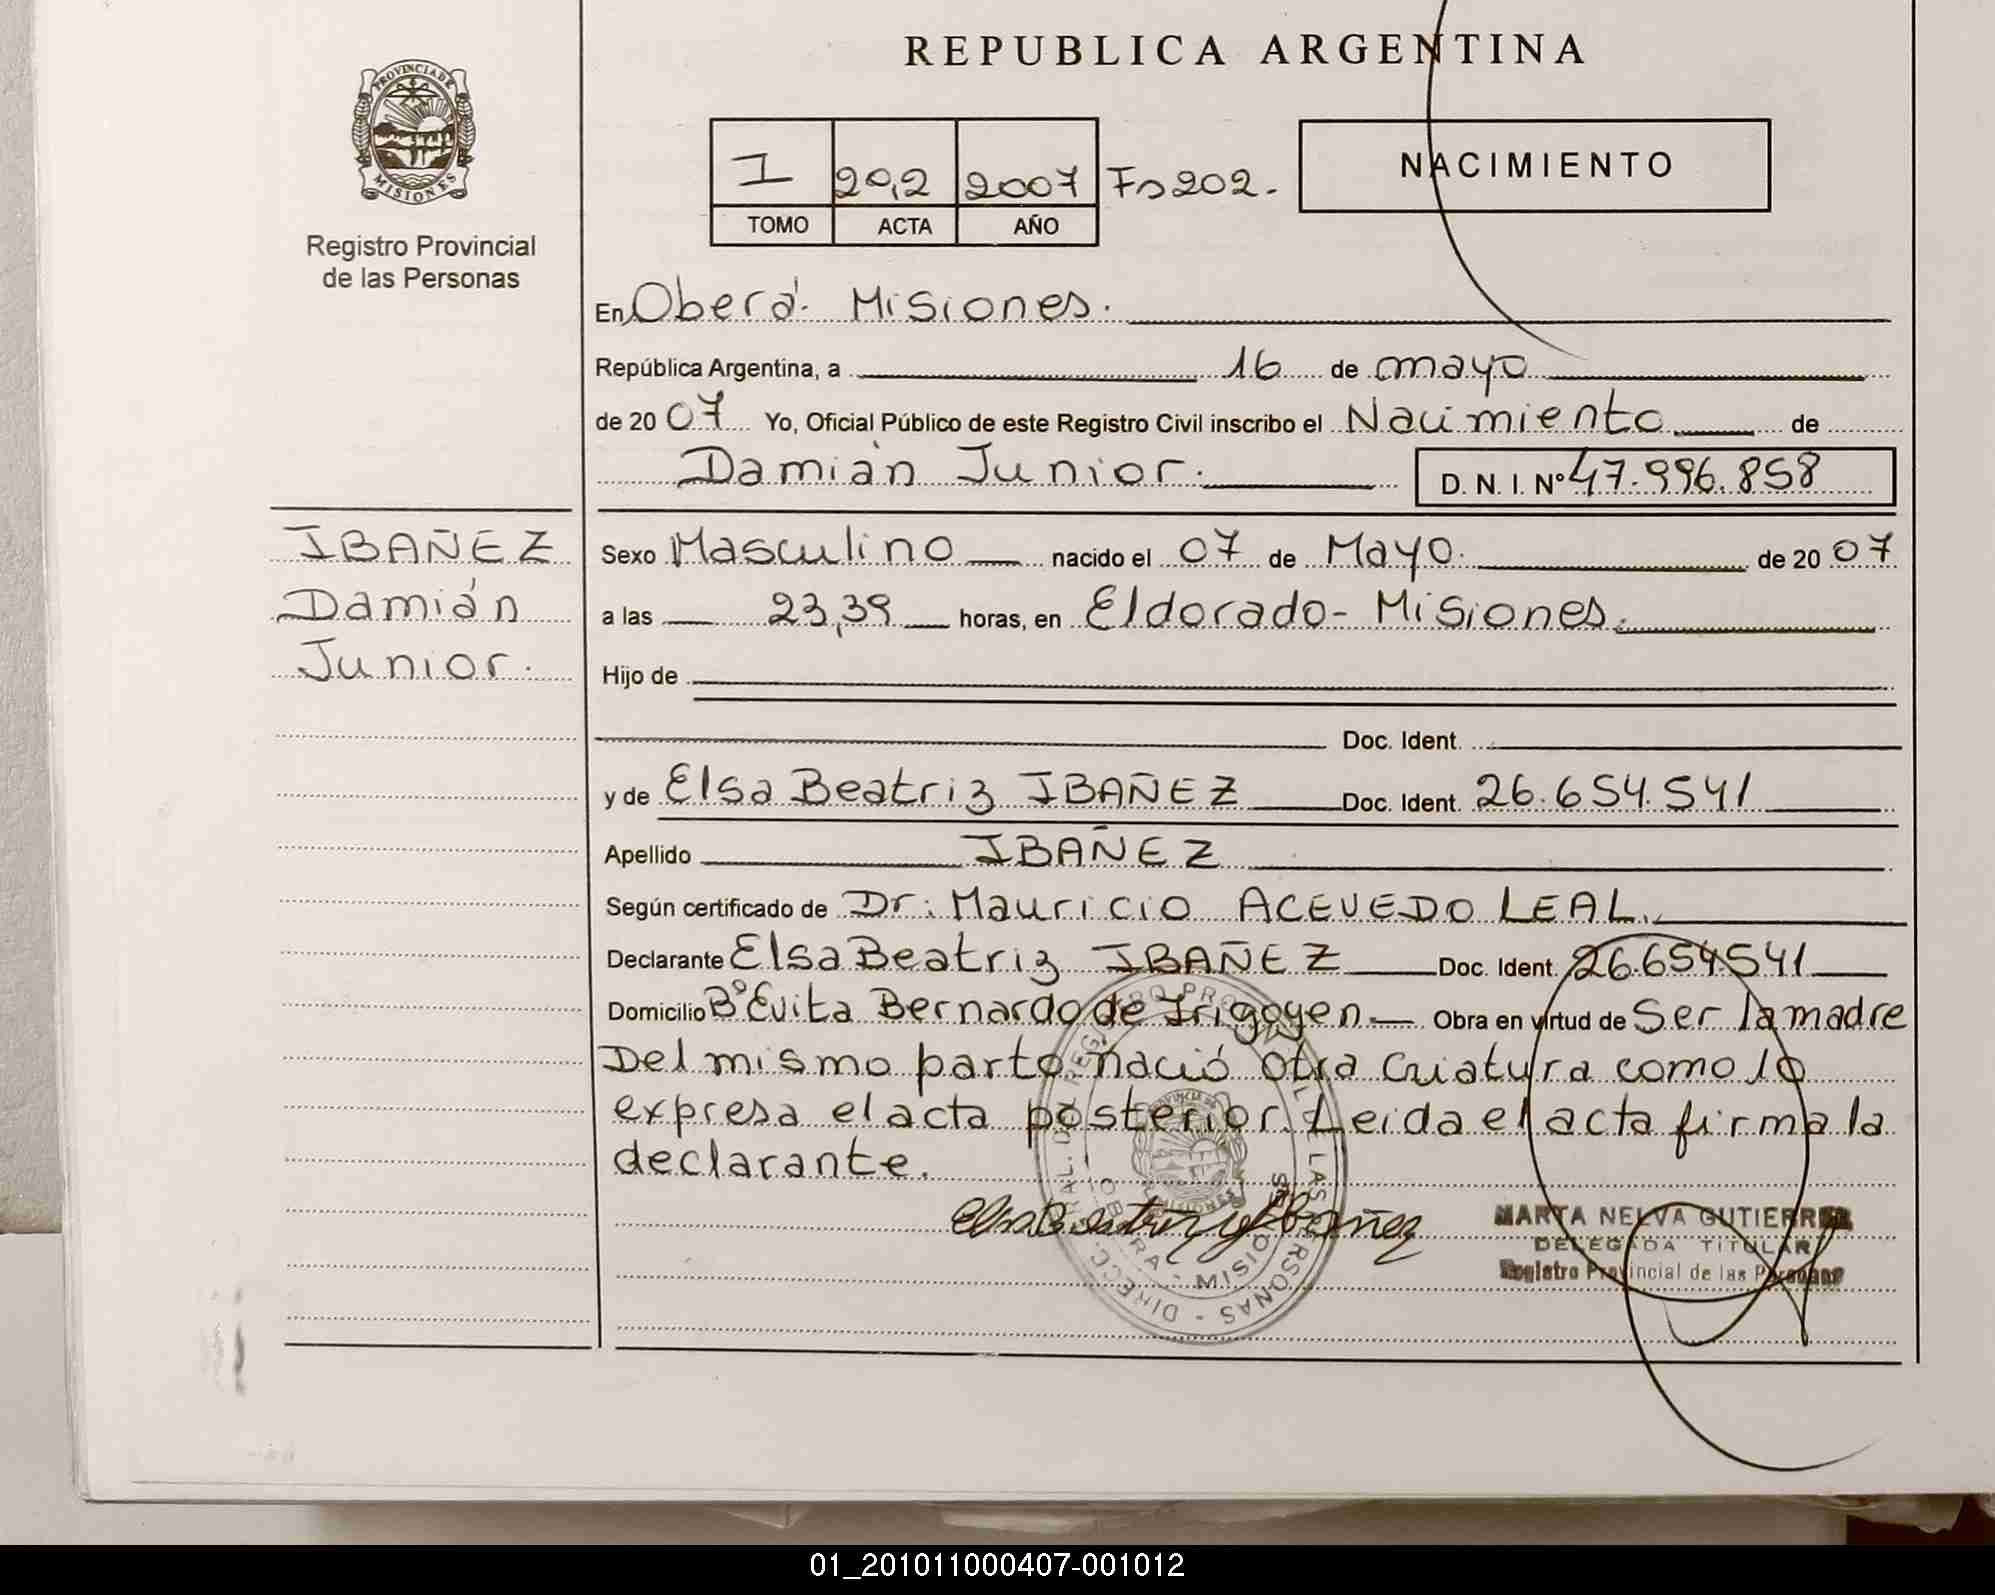 REPUBLICA ARGENTINA
PROVINCIA DE
MISIONES
Registro Provincial
de las Personas
I 202 2007 Fº 202.
TOMO ACTA AÑO
NACIMIENTO
En Oberá. Misiones.
República Argentina, a 16 de mayo
de 2007 Yo, Oficial Público de este Registro Civil inscribo el Nacimiento de
Damián Junior. D. N. I. Nº 47.996.858
IBAÑEZ
Damián
Junior.
Sexo Masculino nacido el 07 de Mayo. de 2007
a las 23,39 horas, en Eldorado - Misiones.
Hijo de
Doc. Ident.
y de Elsa Beatriz IBAÑEZ Doc. Ident. 26.654.541
Apellido IBAÑEZ
Según certificado de Dr: Mauricio ACEVEDO LEAL.
Declarante Elsa Beatriz IBAÑEZ Doc. Ident. 26.654541
Domicilio Bº Evita Bernardo de Irigoyen. Obra en virtud de Ser la madre
Del mismo parto nació otra criatura como lo
expresa el acta posterior. Leida el acta firma la
declarante.
Elsa Beatriz Ibañez
MARTA NELVA GUTIERREZ
DELEGADA TITULAR
Registro Provincial de las Personas
01_201011000407-001012